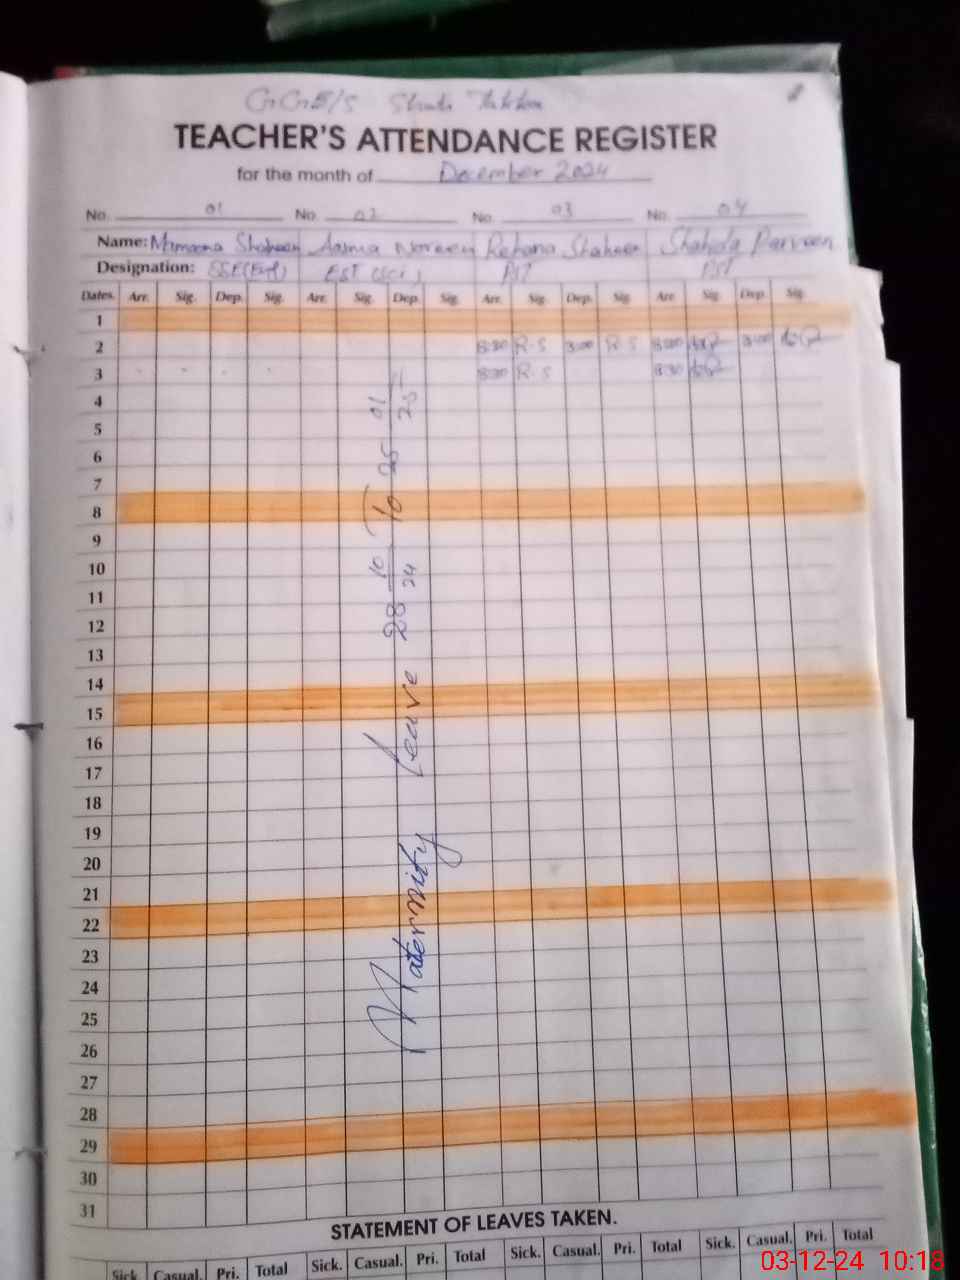 TEACHER'S ATTENDANCE REGISTER
for the month of December 2024
No. 01 No. 02 No. 03 No. 04
Name: Mamoona Shaheen Aasma Noreen Rehana Shaheen Shahida Parveen
Designation: SSE(Eng) EST (Sci) PST PST
Dates. Arr. Sig. Dep. Sig. Arr. Sig. Dep. Sig. Arr. Sig. Dep. Sig. Arr. Sig. Dep. Sig.
1
2 8:30 R.S 3:00 R.S 8:30 3:00
3 8:30 R.S 8:30
4
5
6
7
8
9
10
11
12
13
14
15
16
17
18
19
20
21
22
23
24
25
26
27
28
29
30
31
Maternity leave 28 10/24 To 25 01/25
STATEMENT OF LEAVES TAKEN.
Sick. Casual. Pri. Total Sick. Casual. Pri. Total Sick. Casual. Pri. Total Sick. Casual. Pri. Total
03-12-24 10:18